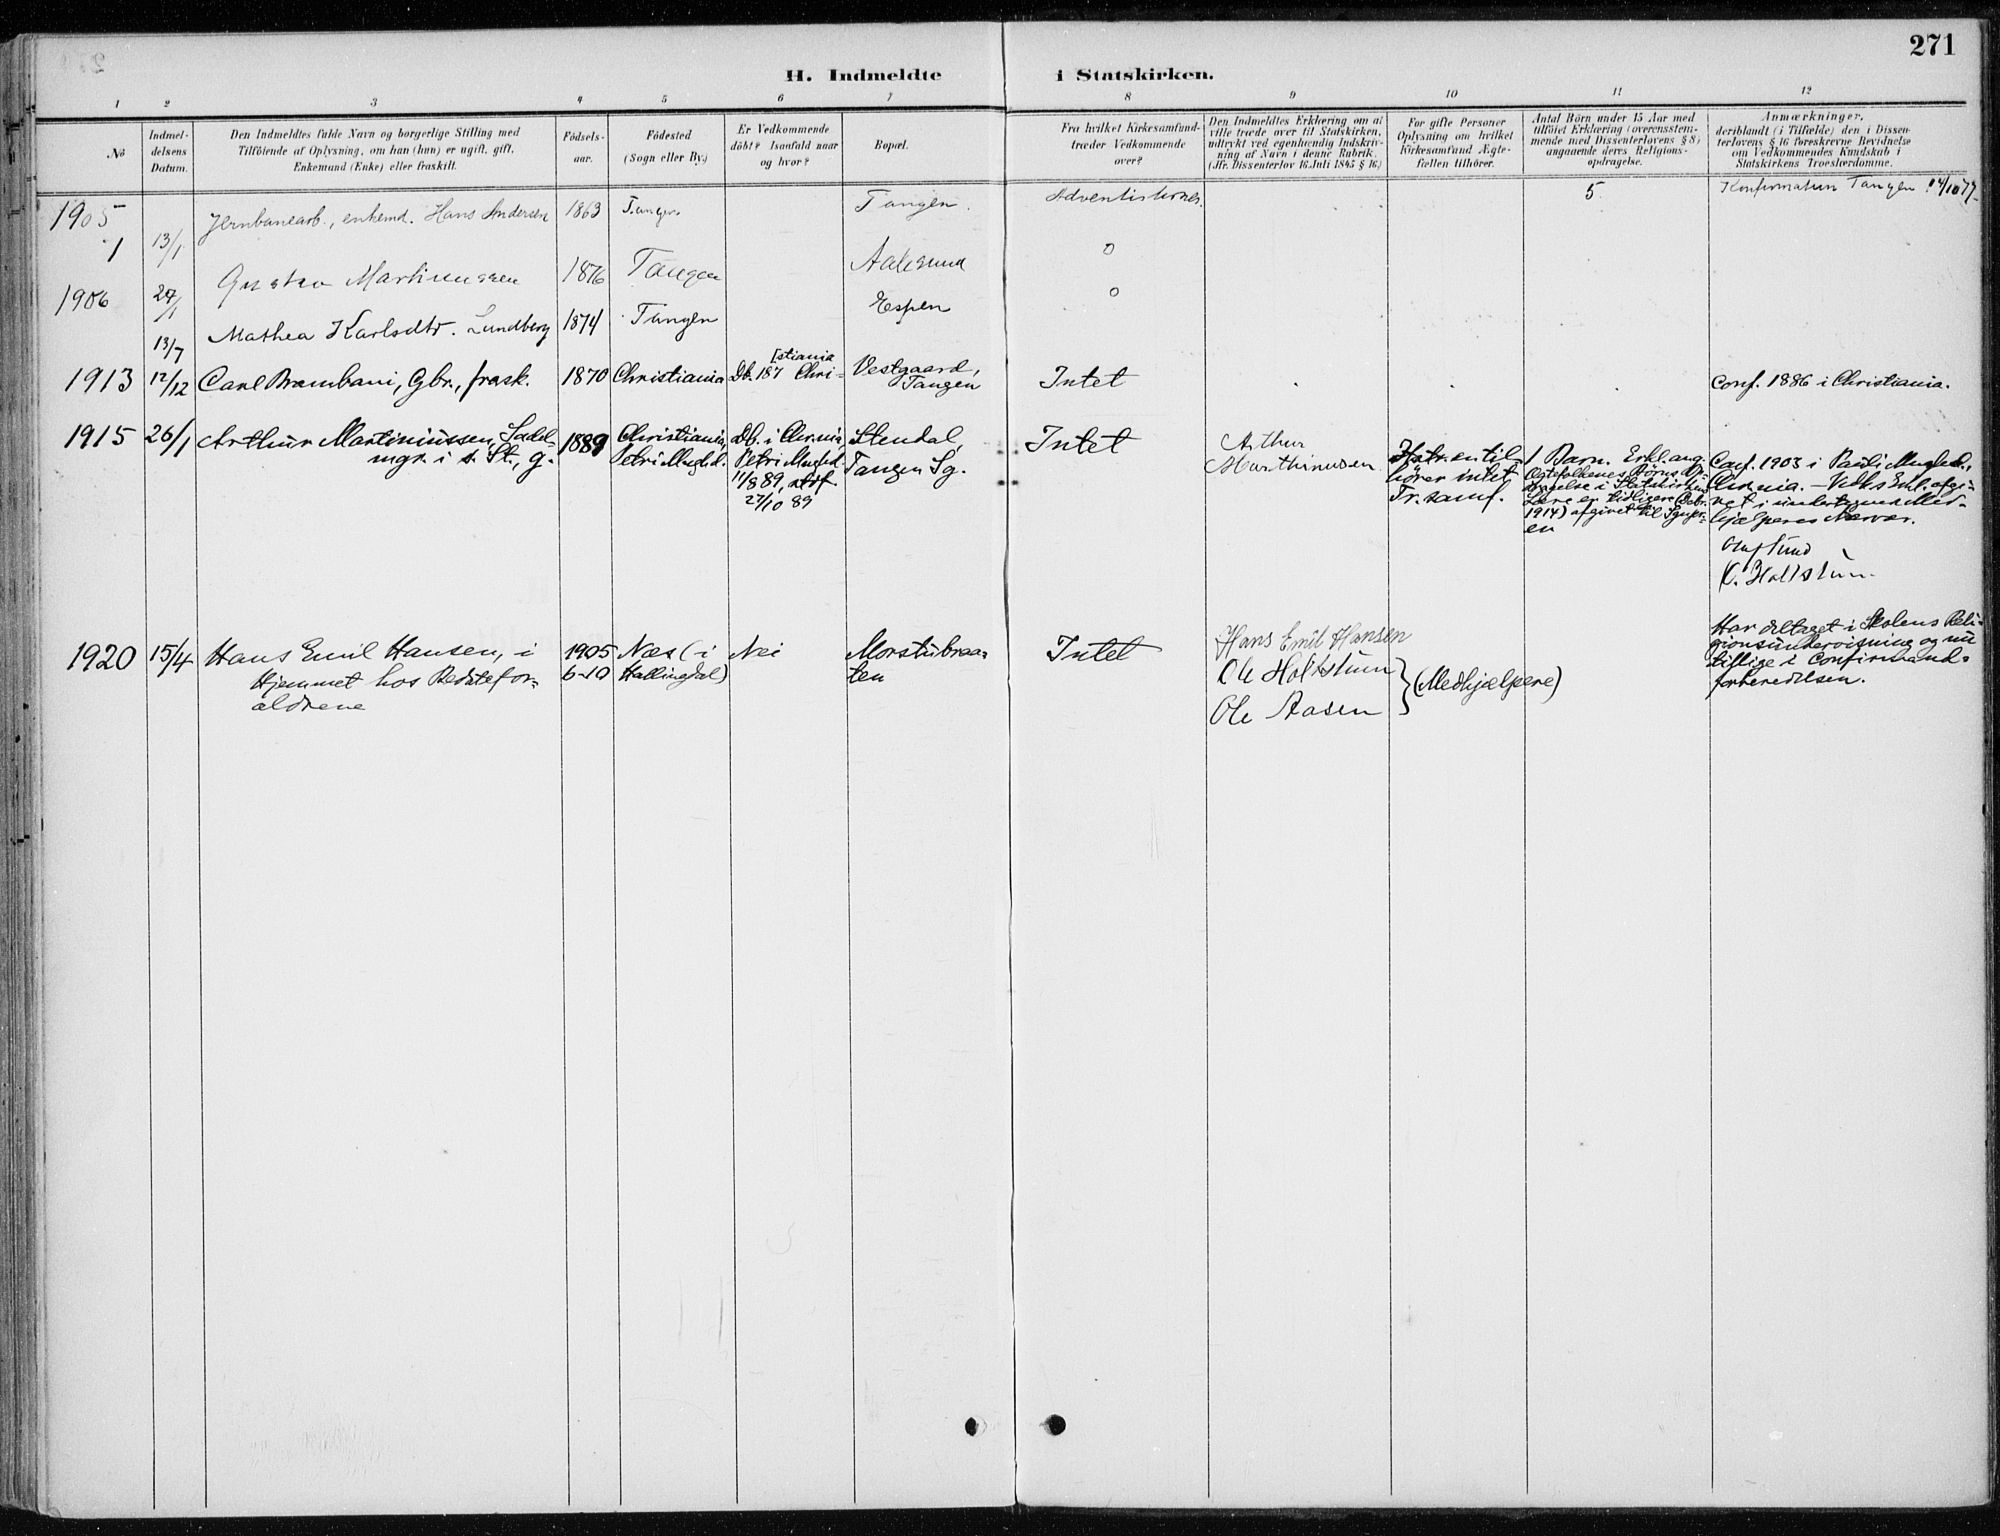 271
H. Indmeldte i Statskirken.
1 2 3 4 5 6 7 8 9 10 11 12
No
Indmel-
delsens
Datum.
Den Indmeldtes fulde Navn og borgerlige Stilling med
Tilföiende af Oplysning, om han (hun) er ugift, gift,
Enkemand (Enke) eller fraskilt.
Födsels-
aar.
Födested
(Sogn eller By.)
Er Vedkommende
döbt? Isaafald naar
og hvor?
Bopæl.
Fra hvilket Kirkesamfund
træder Vedkommende
over?
Den Indmeldtes Erklæring om at
ville træde over til Statskirken,
udtrykt ved egenhændig Indskriv-
ning af Navn i denne Rubrik.
(Jfr. Dissenterlov 16. Juli 1845 § 16.)
For gifte Personer
Oplysning om hvilket
Kirkesamfund Ægte-
fællen tilhörer.
Antal Börn under 15 Aar med
tilföiet Erklæring (overensstem-
mende med Dissenterlovens § 8)
angaaende deres Religions-
opdragelse.
Anmærkninger,
deriblandt (i Tilfælde) den i Dissen-
terlovens § 16 foreskrevne Bevidnelse
om Vedkommendes Kundskab i
Statskirkens Troeslærdomme.
1905
1 13/1 Jernbanearb., enkemd. Hans Andersen 1863 Tangen Tangen Adventisterne. 5. Konfirmation Tangen 14/10 77
Gustav Martinussen 1876 Tangen Aalesund 0
1906 29/1
13/7 Mathea Karlsdtr. Lundberg 1874 Tangen Espen 0
1913 12/12 Carl Brambani, Gbr., frask. 1870 Christiania Db. 187 Chri-
[stiania
Vestgaard,
Tangen
Intet
Conf. 1886 i Christiania.
1915 26/1 Arthur Martiniussen, Sadel-
mgr. i s. St., g.
1889
Christiania,
Petri Mnghd.
Db. i Chr.nia,
Petri Mnghd.
11/8 89, stdf.
27/10 89
Stendal,
Tangen Sg.
Intet
Arthur
Marthinusen
Hstr. en til-
hører intet
Tr. samf.
1 Barn. Erkl. ang.
Ægtefolkenes Børns Op-
dragelse i Statskirkens
Lære er tidligere (Febr.
1914) afgivet til Sgnpr-
en
Conf. 1903 i Pauli Mnghed.,
Chr.nia. – Vedks Erkl. afgi-
vet i undertegnede Med-
hjælperes Nærvær.
Olaf Sund
O. Holtstum.
1920 15/4 Hans Emil Hansen, i
Hjemmet hos Bedstefor-
ældrene
1905
6-10
Næs (i
Hallingdal)
Nei
Morstubraa-
ten
Intet
Hans Emil Hansen
Ole Holtstum
Ole Aasen
(Medhjælpere)
Har deltaget i Skolens Reli-
gionsundervisning og nu
tillige i Confirmand-
forberedelsen.